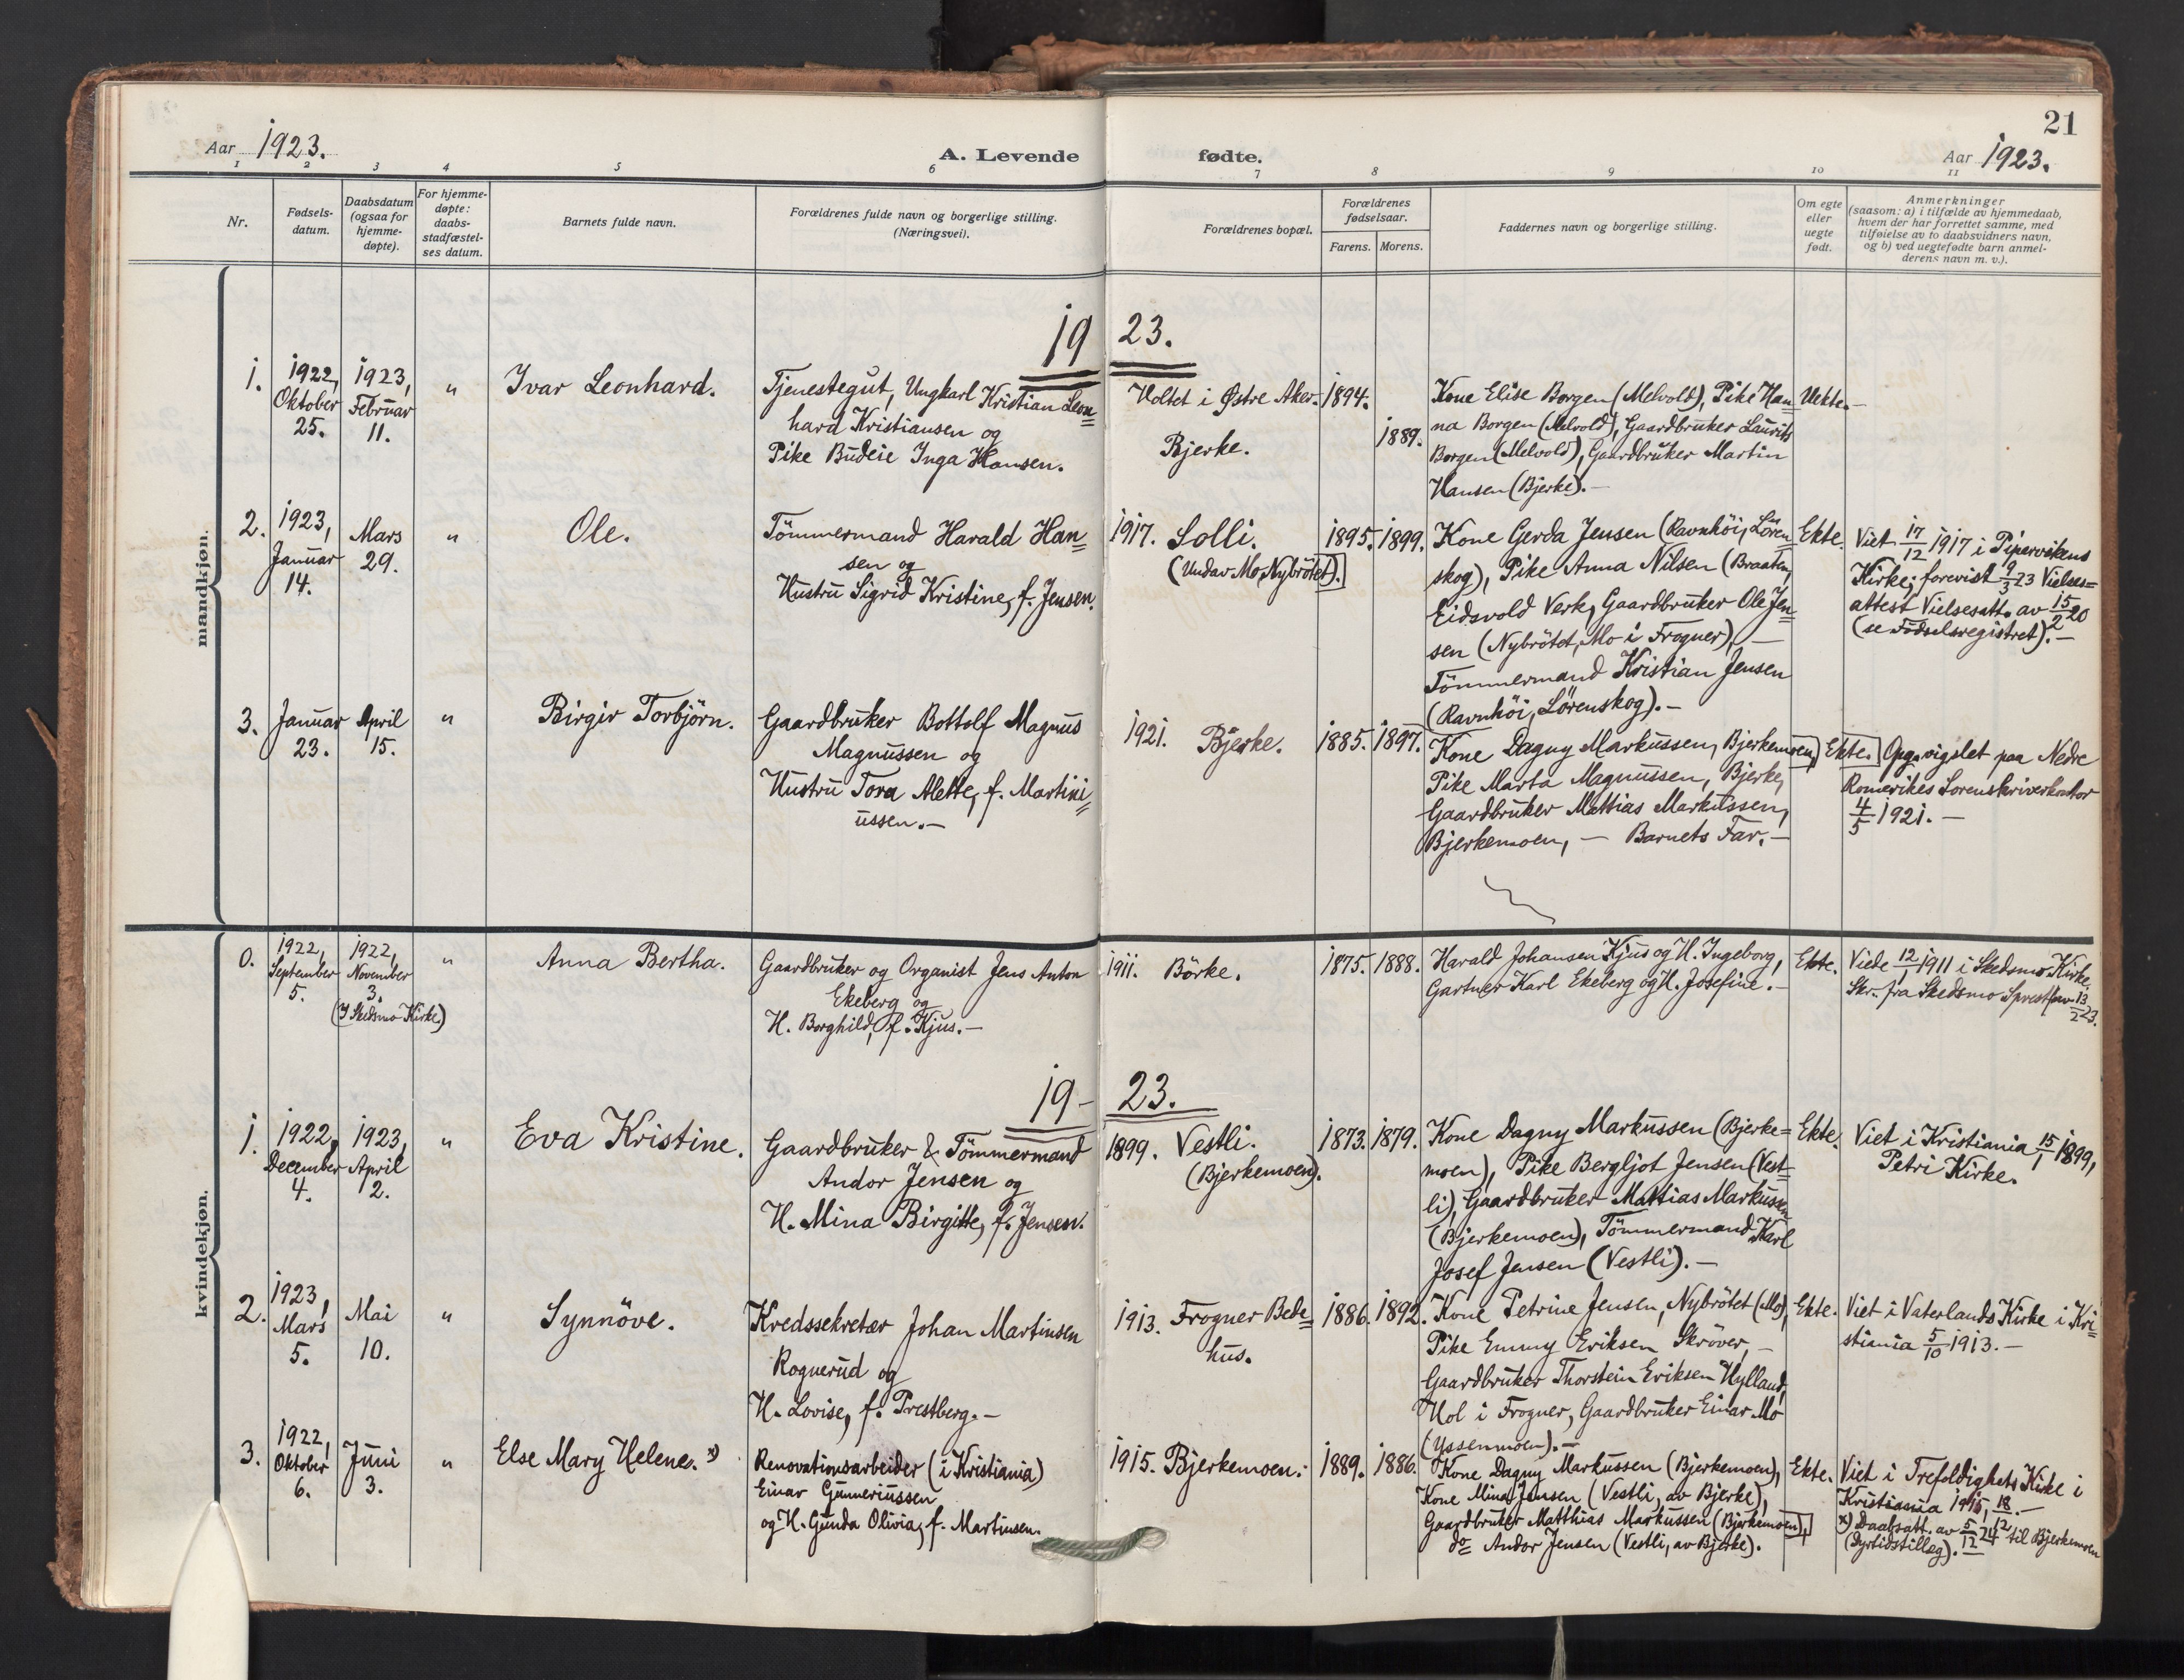 21
Aar 1923.
A. Levende
fødte.
Aar 1923.
1 2 3 4 5 6 7 8 9 10 11
Nr.
Fødsels-
datum.
Daabsdatum
(ogsaa for
hjemme-
døpte).
For hjemme-
døpte:
daabs-
stadfæstel-
ses datum.
Barnets fulde navn.
Forældrenes fulde navn og borgerlige stilling.
(Næringsvei).
Forældrenes bopæl.
Forældrenes
fødselsaar.
Farens.
Morens.
Faddernes navn og borgerlige stilling.
Om egte
eller
uegte
født.
Anmerkninger
(saasom: a) i tilfælde av hjemmedaab,
hvem der har forrettet samme, med
tilføielse av to daabsvidners navn,
og b) ved uegtefødte barn anmel-
derens navn m. v.).
mandkjøn.
19 23.
1.
1922,
Oktober
25.
1923,
Februar
11.
"
Ivar Leonhard.
Tjenestegut, Ungkarl Kristian Leon=
hard Kristiansen og
Pike Budeie Inga Hansen.
Holtet i Østre Aker.
Bjerke.
1894.
1889.
Kone Elise Borgen (Melvold), Pike Han=
na Borgen (Melvold), Gaardbruker Laurits
Borgen (Melvold), Gaardbruker Martin
Hansen (Bjerke).—
Uekte.—
2.
1923,
Januar
14.
Mars
29.
"
Ole.
Tömmermand Harald Han=
sen og
Hustru Sigrid Kristine, f. Jensen.
1917. Solli.
(Under Mo, Nybrötet).
1895.
1899.
Kone Gerda Jensen (Ravnhöi, Lören=
skog), Pike Anna Nilsen (Braaten,
Eidsvold Verk, Gaardbruker Ole Jen=
sen (Nybrötet, Mo i Frogner), —
Tömmermand Kristian Jensen
(Ravnhöi, Lörenskog).—
Ekte.
Viet 17/12 1917 i Pipervikens
Kirke; forevist 9/3 23 Vielses=
attest Vielsesatt. av 15/2 20
(se Födselsregistret).—
3.
Januar
23.
April
15.
"
Birgir Torbjörn.
Gaardbruker Bottolf Magnus
Magnussen og
Hustru Tora Alette, f. Martini=
ussen.—
1921. Bjerke.
1885.
1897.
Kone Dagny Markussen, Bjerkemoen,
Pike Marta Magnussen, Bjerke,
Gaardbruker Mattias Markussen,
Bjerkemoen, — Barnets Far.—
Ekte.
Opg. vigslet paa Nedre
Romerikes Sorenskriverkontor
4/5 1921.—
kvindekjøn.
0.
1922,
September
5.
1922,
November
3.
(I Skedsmo Kirke)
"
Anna Bertha.
Gaardbruker og Organist Jens Anton
Ekeberg og
H. Borghild, f. Kjus.—
1911. Börke.
1875.
1888.
Harald Johansen Kjus og H. Ingeborg,
Gartner Karl Ekeberg og H. Josefine.—
Ekte.
Viede 12/1 1911 i Skedsmo Kirke.
Skr. fra Skedsmo Sprest av 13/2 23.
19– 23.
1.
1922,
December
4.
1923,
April
2.
"
Eva Kristine.
Gaardbruker & Tömmermand
Andor Jensen og
H. Mina Birgitte, f. Jensen.
1899. Vestli.
(Bjerkemoen).
1873.
1879.
Kone Dagny Markussen (Bjerke=
moen), Pike Bergljot Jensen (Vest=
li), Gaardbruker Mattias Markussen
(Bjerkemoen), Tömmermand Karl
Josef Jensen (Vestli).—
Ekte.
Viet i Kristiania 15/1 1899,
Petri Kirke.
2.
1923,
Mars
5.
Mai
10.
"
Synnöve.
Kredssekretær Johan Martinsen
Rognerud og
H. Lovise, f. Prestberg.—
1913. Frogner Bede=
hus.
1886.
1892.
Kone Petrine Jensen, Nybrötet (Mo),
Pike Emmy Eriksen Skröver, —
Gaardbruker Thorstein Eriksen Hylland,
Hol i Frogner, Gaardbruker Einar Mo
(Yssenmoen).—
Ekte.
Viet i Vaterlands Kirke i Kri=
stiania 5/10 1913.—
3.
1922,
Oktober
6.
Juni
3.
"
Else Mary Helene. x)
Renovationsarbeider (i Kristiania)
Einar Gunneriussen
og H. Gunda Olivia, f. Martinsen.
1915. Bjerkemoen.
1889.
1886.
Kone Dagny Markussen (Bjerkemoen),
Kone Mina Jensen (Vestli, av Bjerke),
Gaardbruker Matthias Markussen (Bjerkemoen),
do Andor Jensen (Vestli, av Bjerke).
Ekte.
Viet i Trefoldighets Kirke i
Kristiania 1915, 18/12.—
x) Daabsatt. av 5/12 24 til Bjerkemoen
(Dyrtidstillæg).—